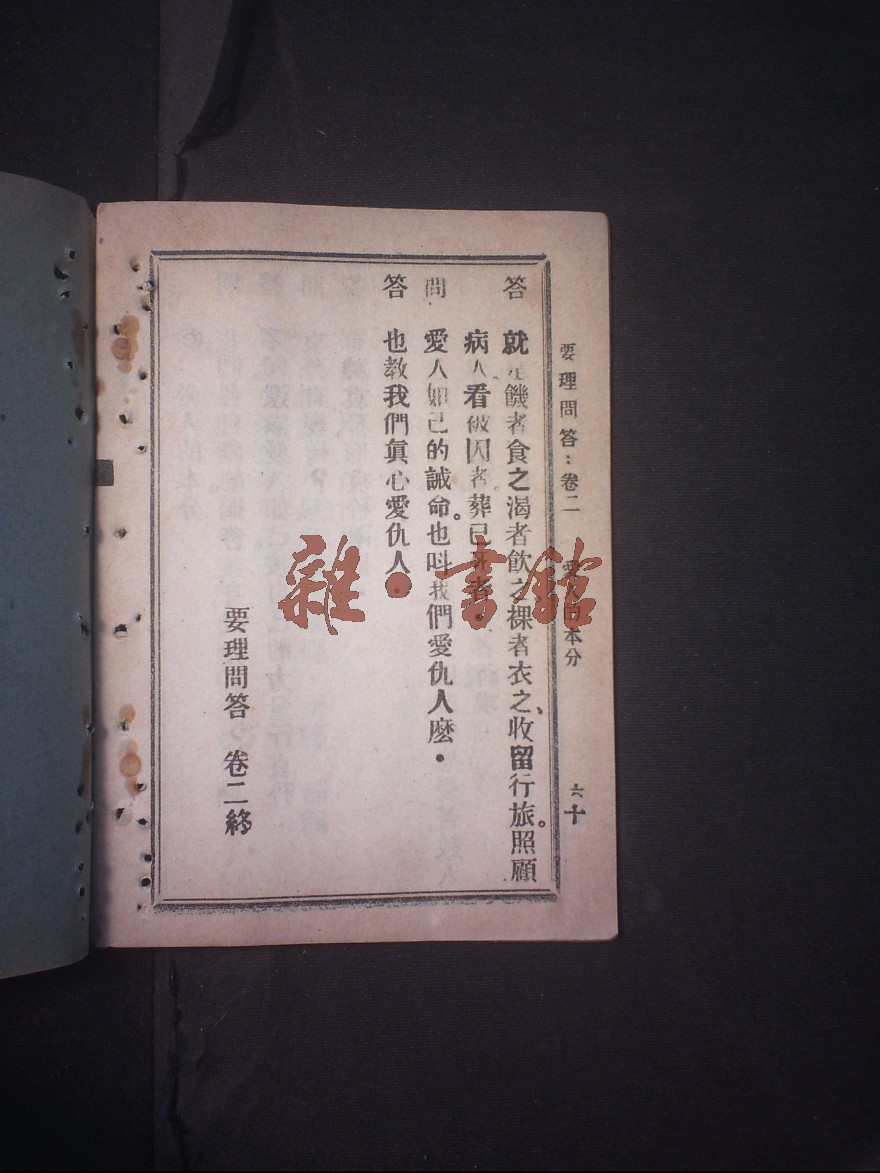 要理問答：卷二 愛人的本分 六十
答 就是饑者食之渴者飲之裸者衣之、收留行旅。照顧
病人、看被囚者。葬已死者。
問 愛人如己的誡命。也叫我們愛仇人麽．
答 也教我們真心愛仇人．
要理問答 卷二終
雜·書館